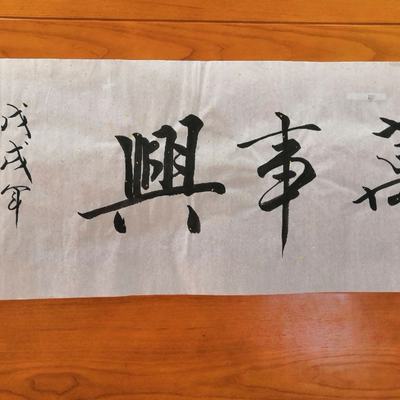 萬事興
戊戌年